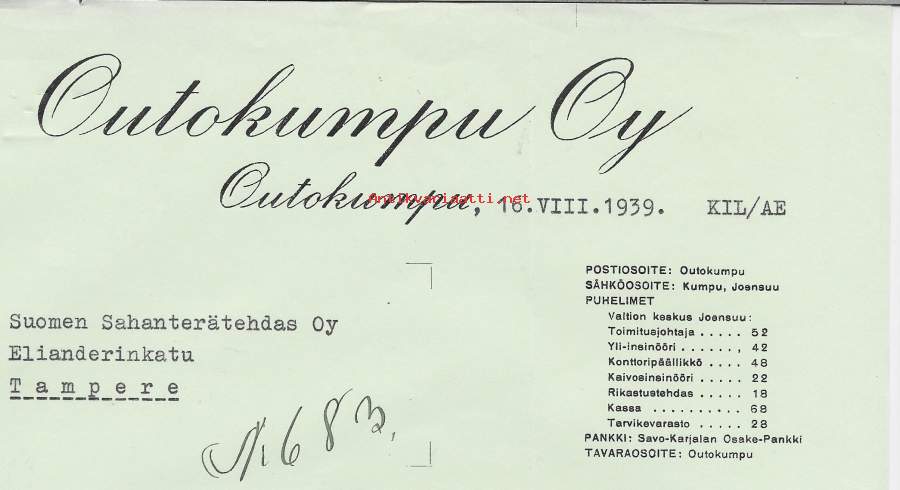 Outokumpu Oy
Outokumpu, 16.VIII.1939. KIL/AE
Antikvariaatti.net
POSTIOSOITE: Outokumpu
SÄHKÖOSOITE: Kumpu, Joensuu
PUHELIMET
Valtion keskus Joensuu:
Toimitusjohtaja ..... 52
Yli-insinööri ......, 42
Konttoripäällikkö .... 48
Kaivosinsinööri ..... 22
Rikastustehdas ..... 18
Kassa .......... 68
Tarvikevarasto ..... 28
PANKKI: Savo-Karjalan Osake-Pankki
TAVARAOSOITE: Outokumpu
Suomen Sahanterätehdas Oy
Elianderinkatu
Tampere
683.